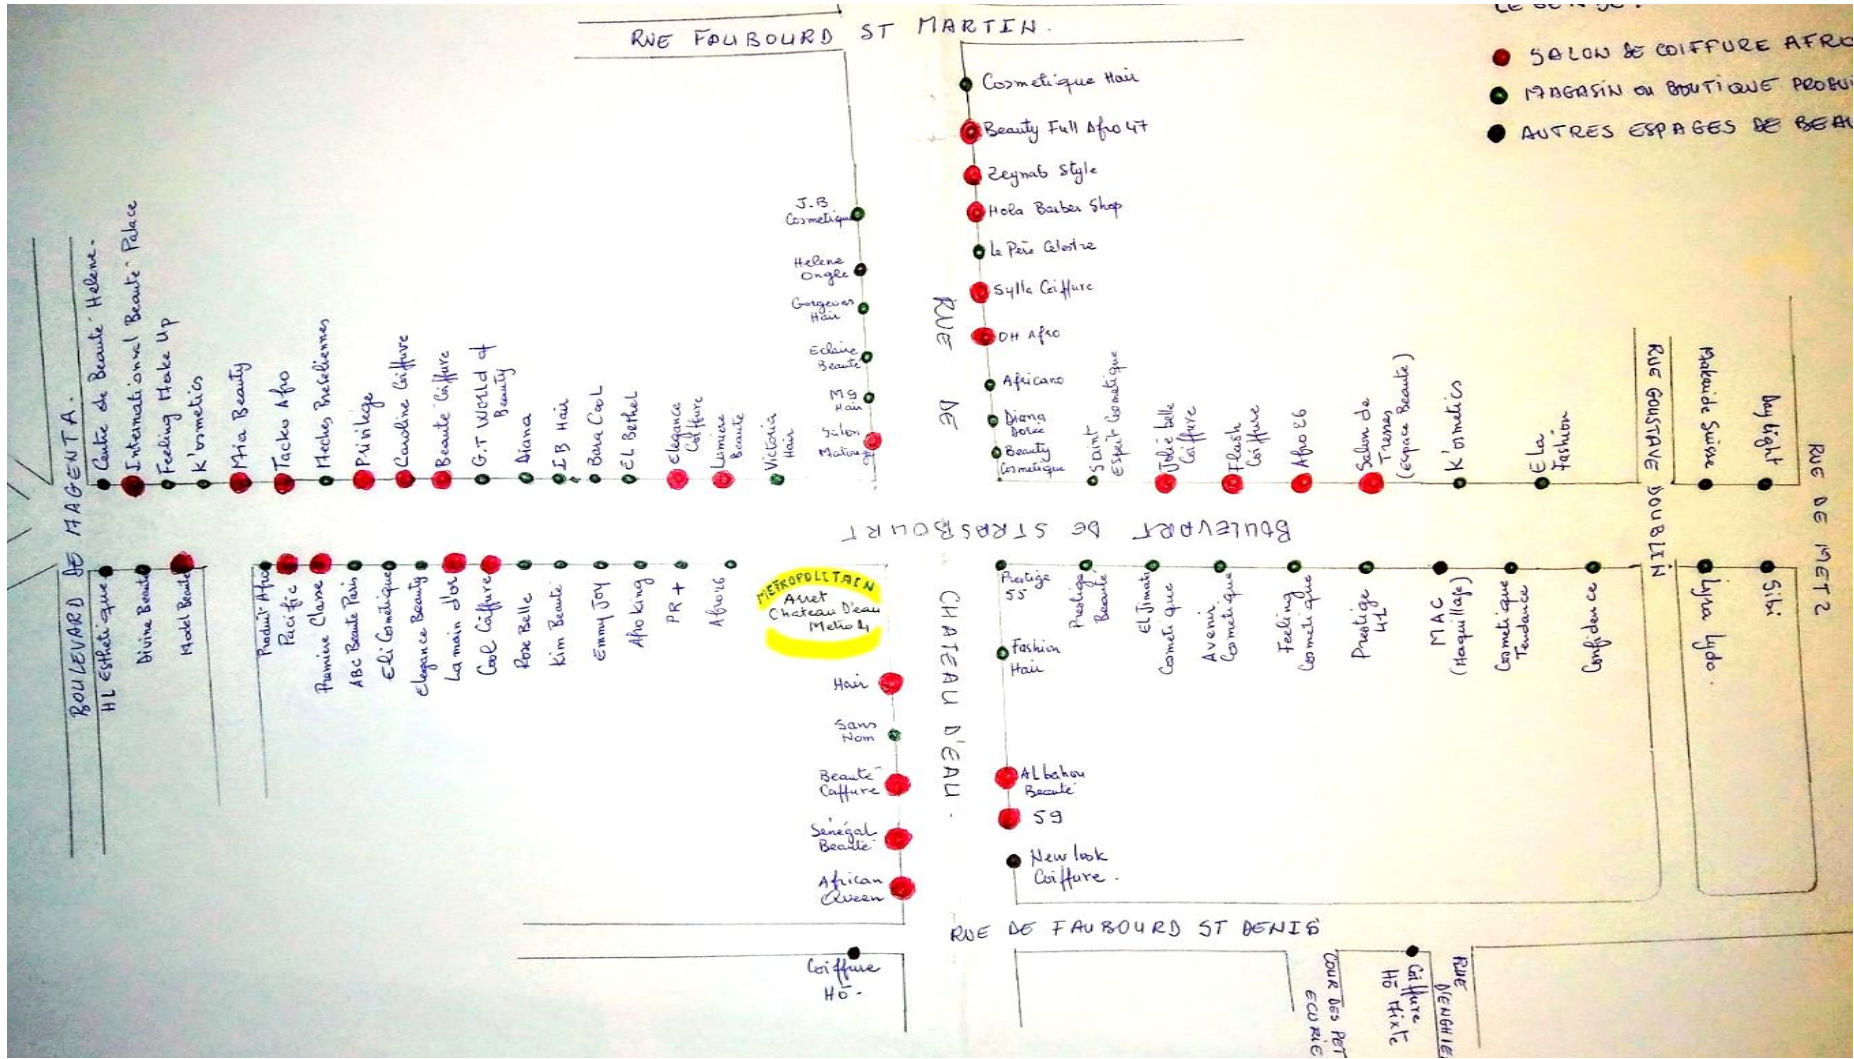 RUE FAUBOURD ST MARTIN.
LEGENDE:
SALON DE COIFFURE AFRO
MAGASIN OU BOUTIQUE PRODUI
AUTRES ESPACES DE BEAU
Cosmetique Hair
Beauty Full Afro 47
Zeynab Style
Hola Barber Shop
Le Père Celestre
Sylla Coiffure
OH Afro
Africano
Diana
Beauty
Cosmetique
J.B
Cosmetique
Helene
Ongle
Gorgeous
Hair
Eclaire
Beauté
M9
Hair
Salon
RUE DE
CHATEAU D'EAU.
BOULEVARD DE MAGENTA.
Centre de Beauté Helene.
International Beauté Palace
Feeling Make Up
K'osmetics
Mia Beauty
Tacko Afro
Meches Bresiliennes
Privilege
Caroline Coiffure
Beauté Coiffure
G.T World of
Beauty
Diana
I.B Hair
Bana Cool
EL Bethel
Elegance
Coiffure
Lumiere
Beauté
Victoria
Hair
Saint
Esprit Cosmetique
Jolie belle
Coiffure
Flash
Coiffure
Afro 26
Salon de
Tresses
(espace Beauté)
K'osmetics
Ela
Fashion
RUE GOUSTAVE DOUBLIN
Suisse
Day light
RUE DE METZ
BOULEVART DE STRASBOURT
HL Esthetique
Divine Beauté
Model Beauté
Produit Afro
Pacific
Premiere Classe
ABC Beauté Paris
Eli Cosmetique
Elegance Beauty
La main d'or
Cool Coiffure
Rose Belle
Kim Beauté
Emmy Joy
Afro King
PR+
Afro 26
METROPOLITAIN
Arret
Chateau D'eau
Metro 4
Prestige
55
Prestige
Beauté
El Jinan
Cosmetique
Avenir
Cosmetique
Feeling
Cosmetique
Prestige
41
MAC
(Maquillage)
Cosmetique
Tendance
Confidence
Lyna Lydo.
Sibi
Fashion
Hair
Hair
Sans
Nom
Beauté
Coiffure
Sénégal
Beauté
African
Queen
Albahou
Beauté
59
New look
Coiffure.
RUE DE FAUBOURD ST DENIS
Coiffure
HÔ-
COUR DES PET
ECURIE
Coiffure
Hô Mixte
RUE
D'ENGHIE